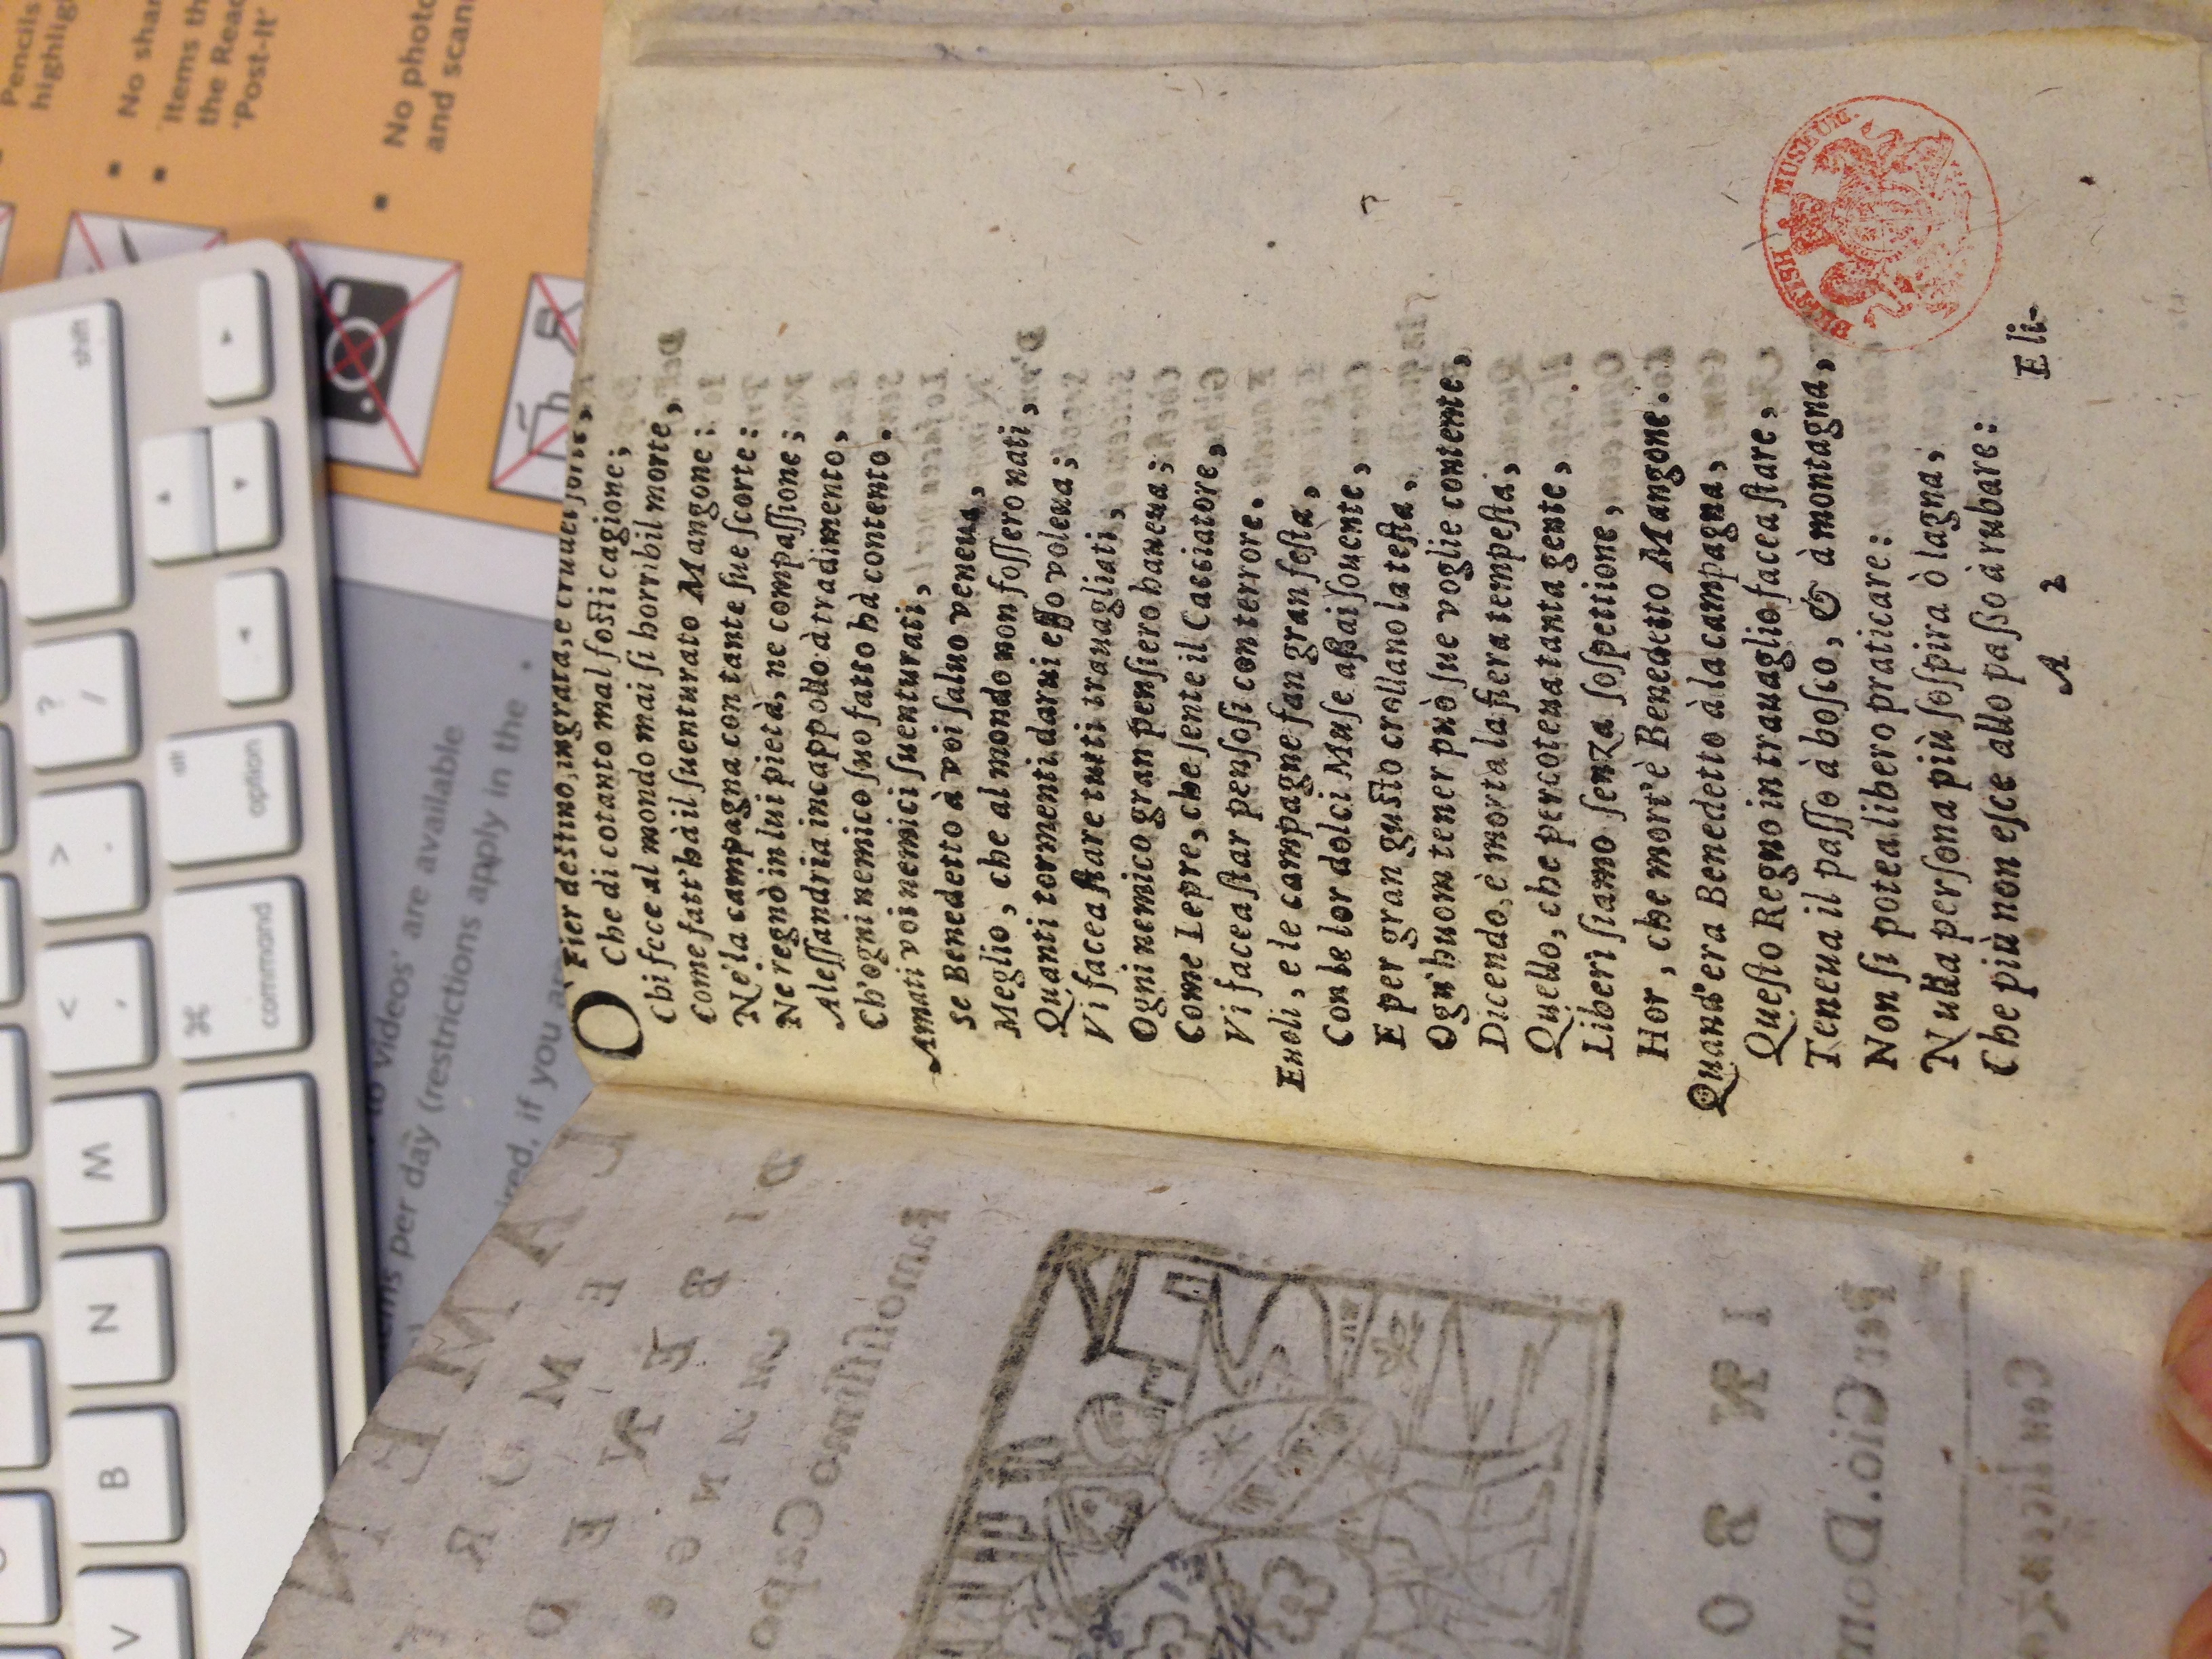 O Fier destino, ingrata, e crudel sorte,
Che di cotanto mal fosti cagione;
Chi fece al mondo mai sì horribil morte,
Come fatt'hà il suenturato Mangone:
Nè la campagna con tante sue scorte:
Ne regnò in lui pietà, ne compassione;
Alessandria incappollo à tradimento,
Ch'ogni nemico suo fatto hà contento.
Amati voi nemici suenturati,
Se Benedetto à voi saluo veneua,
Meglio, che al mondo non fossero nati,
Quanti tormenti darui esso voleua;
Vi facea stare tutti trauagliati,
Ogni nemico gran pensiero haueua;
Come Lepre, che sente il Cacciatore,
Vi facea star pensosi con terrore.
Euoli, e le campagne fan gran festa,
Con le lor dolci Muse assai souente,
E per gran gusto crollano la testa,
Ogn'huom tener può sue voglie contente,
Dicendo, è morta la fiera tempesta,
Quello, che percoteua tanta gente,
Liberi siamo senza sospettione,
Hor, che mort'è Benedetto Mangone.
Quand'era Benedetto à la campagna,
Questo Regno in trauaglio facea stare,
Teneua il passo à bosco, & à montagna,
Non si potea libero praticare:
Nulla persona più sospira ò lagna,
Che più non esce allo passo à rubare:
A 2
Eli-
BRITISH MUSEUM
Pencils
highlig
No shar
'Items th
the Read
'Post-It'
No photo
and scan
videos' are available
per day (restrictions apply in the
if you
shift
?
/
>
.
<
,
alt
option
command
M
N
B
V